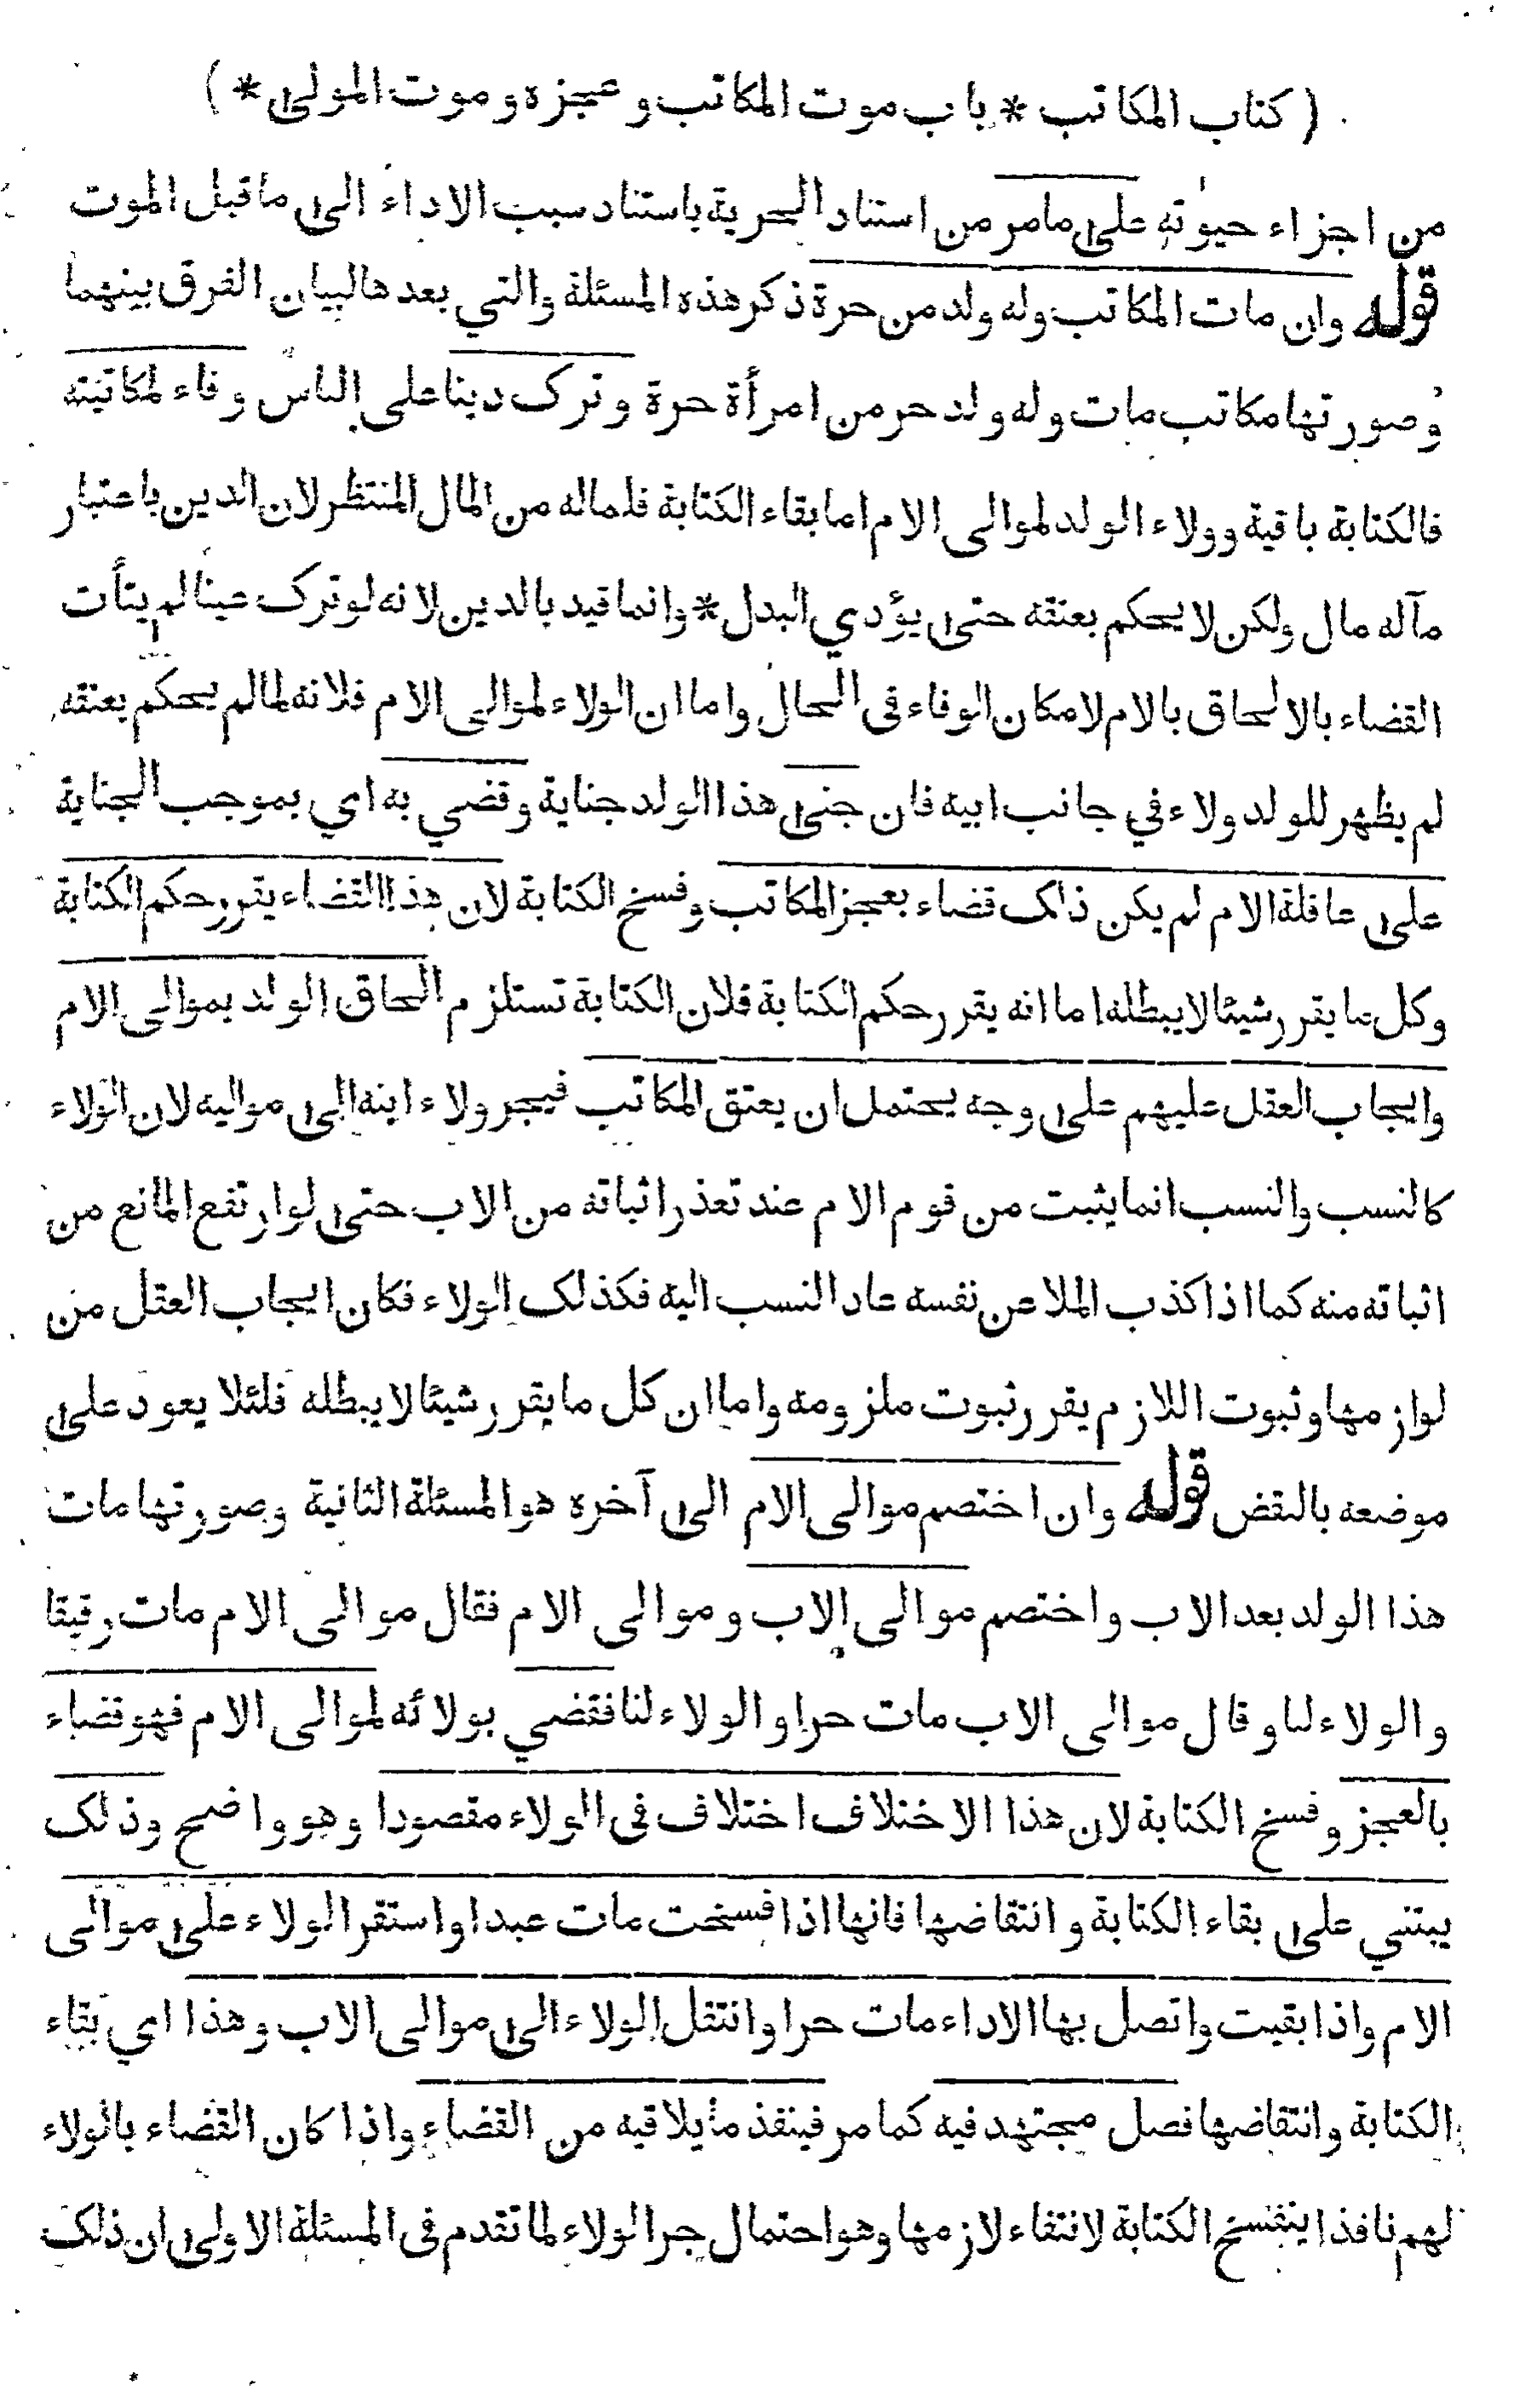 ( كتاب المكاتب * باب موت المكاتب و عجزه و موت المولى * )
من اجزاء حيوته على مامر من استناد الحرية باستناد سبب الاداء الى ماقبل الموت
قوله وان مات المكاتب وله ولد من حرة ذكر هذه المسئلة والتي بعدها لبيان الفرق بينهما
وصورتها مكاتب مات وله ولد حر من امرأة حرة وترك دينا على الناس وفاء لمكاتبته
فالكتابة باقية وولاء الولد لموالى الام اما بقاء الكتابة فلماله من المال المنتظر لان الدين باعتبار
مآله مال ولكن لا يحكم بعتقه حتى يؤدي البدل * وانما قيد بالدين لانه لو ترك عينا لم يتأت
القضاء بالالحاق بالام لامكان الوفاء فى الحال واما ان الولاء لموالى الام فلانه لما لم يحكم بعتقه
لم يظهر للولد ولاء في جانب ابيه فان جنى هذا الولد جناية وقضي به اي بموجب الجناية
على عاقلة الام لم يكن ذلك قضاء بعجز المكاتب وفسخ الكتابة لان هذا القضاء يقرر حكم الكتابة
وكل ما يقرر شيئا لا يبطله اما انه يقرر حكم الكتابة فلان الكتابة تستلزم الحاق الولد بموالى الام
وايجاب العقل عليهم على وجه يحتمل ان يعتق المكاتب فيجر ولاء ابنه الى مواليه لان الولاء
كالنسب والنسب انما يثبت من قوم الام عند تعذر اثباته من الاب حتى لو ارتفع المانع من
اثباته منه كما اذا كذب الملاعن نفسه عاد النسب اليه فكذلك الولاء فكان ايجاب العقل من
لوازمها وثبوت اللازم يقرر ثبوت ملزومه واما ان كل ما يقرر شيئا لا يبطله فلئلا يعود على
موضعه بالنقض قوله وان اختصم موالى الام الى آخره هو المسئلة الثانية وصورتها مات
هذا الولد بعد الاب واختصم موالى الاب وموالى الام فقال موالى الام مات رقيقا
والولاء لنا وقال موالى الاب مات حرا والولاء لنا فقضي بولائه لموالى الام فهو قضاء
بالعجز وفسخ الكتابة لان هذا الاختلاف اختلاف فى الولاء مقصودا وهو واضح وذلك
يبتني على بقاء الكتابة وانتقاضها فانها اذا فسخت مات عبدا واستقر الولاء على موالى
الام واذا بقيت واتصل بها الاداء مات حرا وانتقل الولاء الى موالى الاب وهذا اي بقاء
الكتابة وانتقاضها فصل مجتهد فيه كما مر فينفذ ما يلاقيه من القضاء واذا كان القضاء بالولاء
لهم نافذا ينفسخ الكتابة لانتفاء لازمها وهو احتمال جر الولاء لما تقدم فى المسئلة الاولى ان ذلك